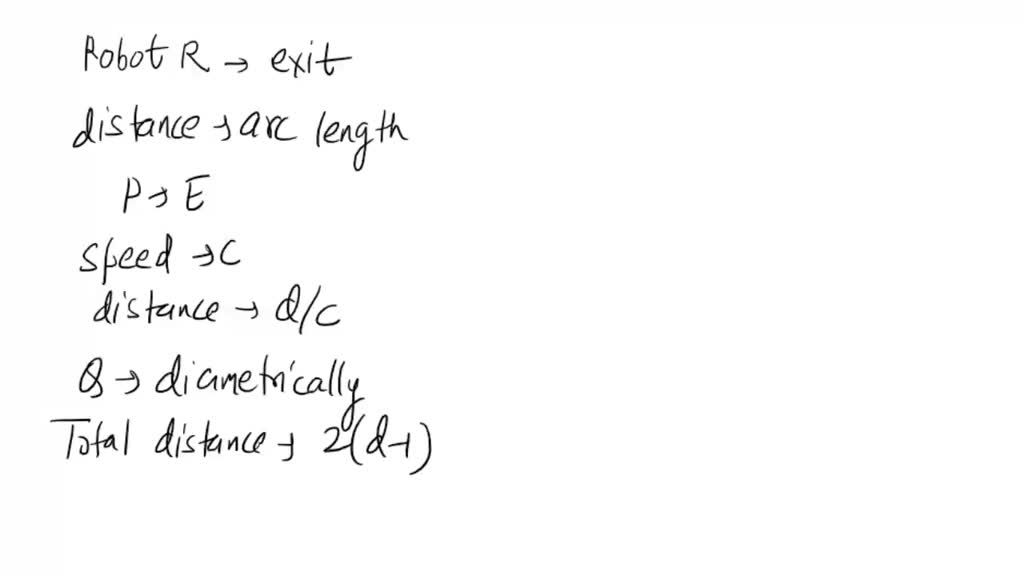 Robot R → exit
distance → arc length
P → E
speed → C
distance → d/c
Q → diametrically
Total distance → 2(d-1)